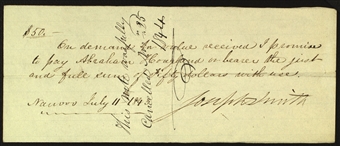 $50.—
On demand for value received I promise
to pay Abraham or bearer the just
and full sum of Fifty dollars with use.
Nauvoo July 11 184
Joseph Smith
This note
Cancelled